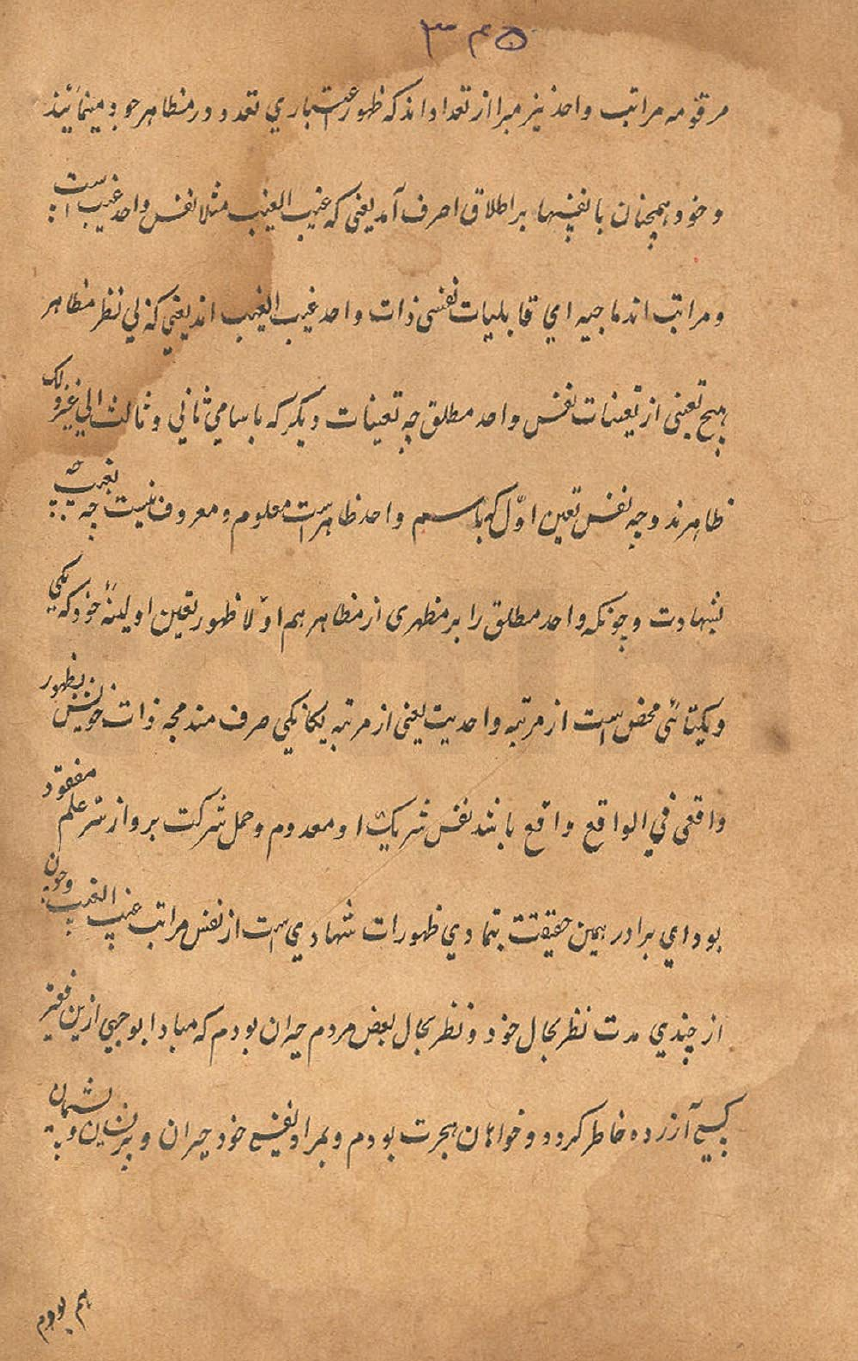 ۳۴۵
مرقومه مراتب واحد نیز مبرا از تعداد اند که ظهور اعتباری تعدد در مظاهر خود مینمائیند
و خود همچنان بالفینها بر اطلاق صرف آمد یعنی که غیب الغیب مثلا نفس واحد غیب است
و مراتب اندماجیه ای قابلیات نفسی ذات واحد غیب الغیب اند یعنی که فی نظر مظاهر
هیچ تعینی از تعینات نفس واحد مطلق چه تعینات دیگر که باسامی ثانی و ثالث الی غیر ذلک
ظاهرند و چه نفس تعین اوّل که باسم واحد ظاهر است معلوم و معروف نیست چه بغیب چه
بشهادت و چونکه واحد مطلق را بر مظهری از مظاهر هم اوّلا ظهور تعین اولینهٔ خود که یکی
و یکتائی محض است از مرتبه واحدیت یعنی از مرتبه یکانیکی صرف مندمجه ذات خویش بظهور
واقعی فی الواقع واقع بانند نفس شریک او معدوم و حمل شرکت برو از سر علم مفقود
بود ای برادر همین حقیقت بتمادی ظهورات شهادی است از نفس مراتب غیب الغیب و چون
از چندی مدت نظر بحال خود و نظر بحال بعض مردم حیران بودم که مبادا بوجهی ازین فقیر
کسی آزرده خاطر کردد و خواهان هجرت بودم و بمراد نفس خود حیران و پریشان و پشیمان
هم بودم